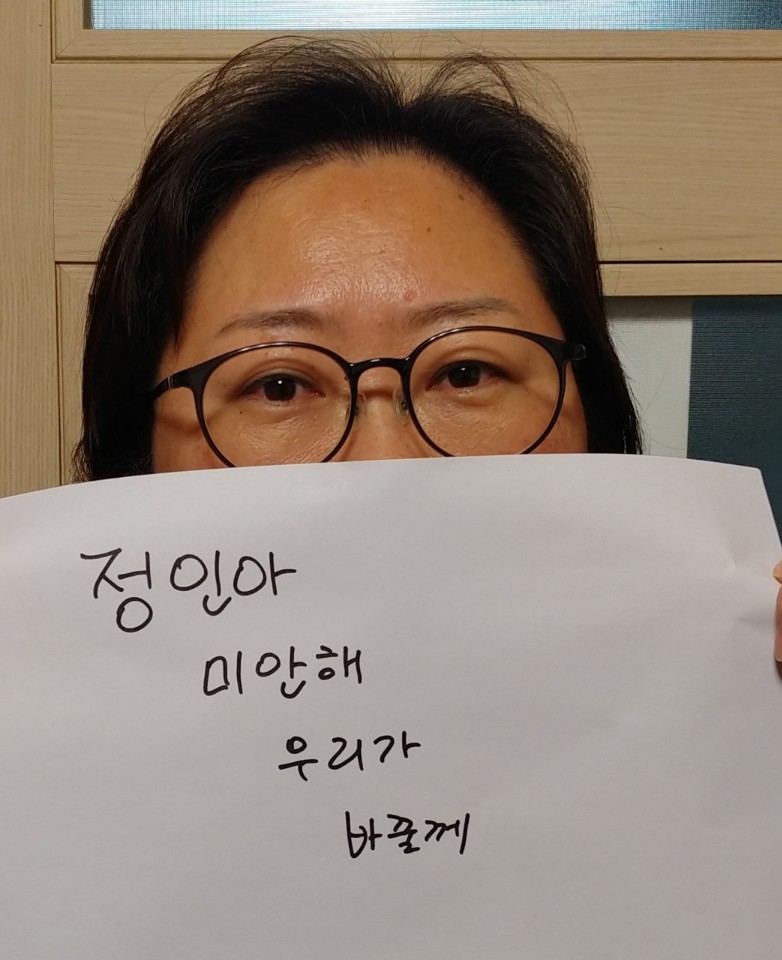 정인아
미안해
우리가
바꿀께